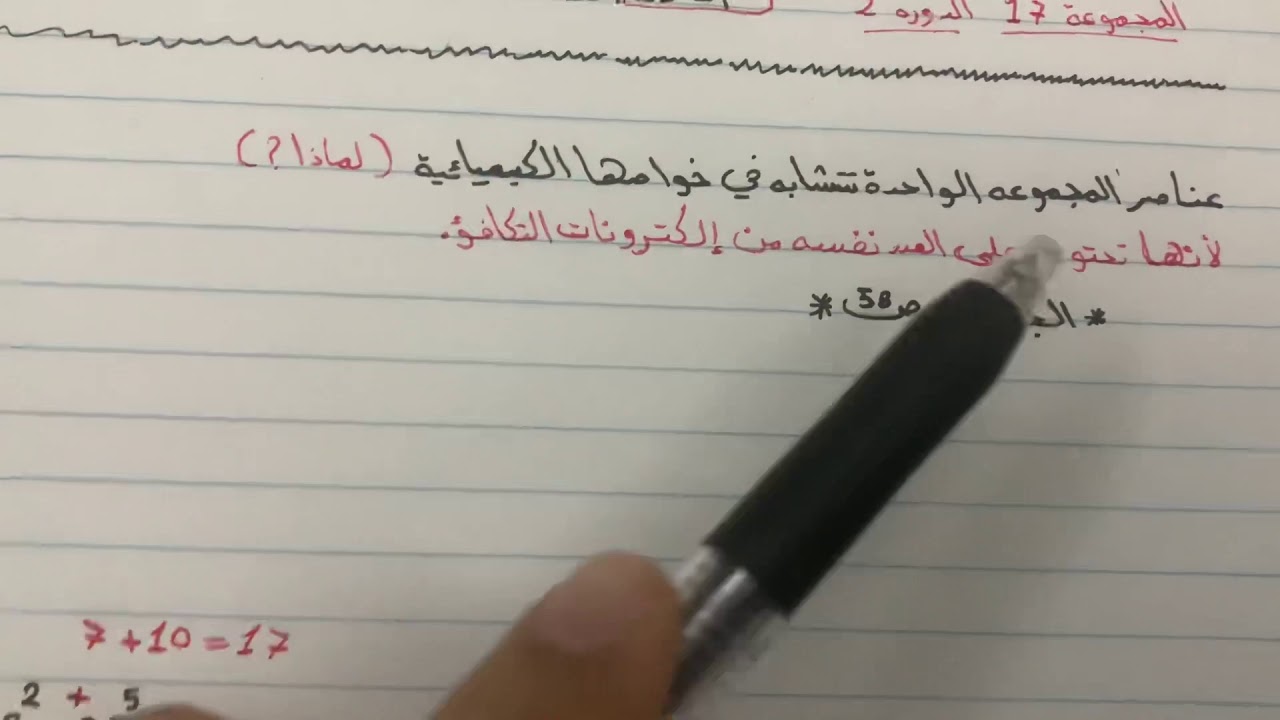 المجموعة 17 الدوره 2
عناصر المجموعه الواحدة تتشابه في خواصها الكيميائية (لماذا؟)
لأنها تحتو على العدد نفسه من إلكترونات التكافؤ.
* ص 58 *
7 + 10 = 17
2 + 5